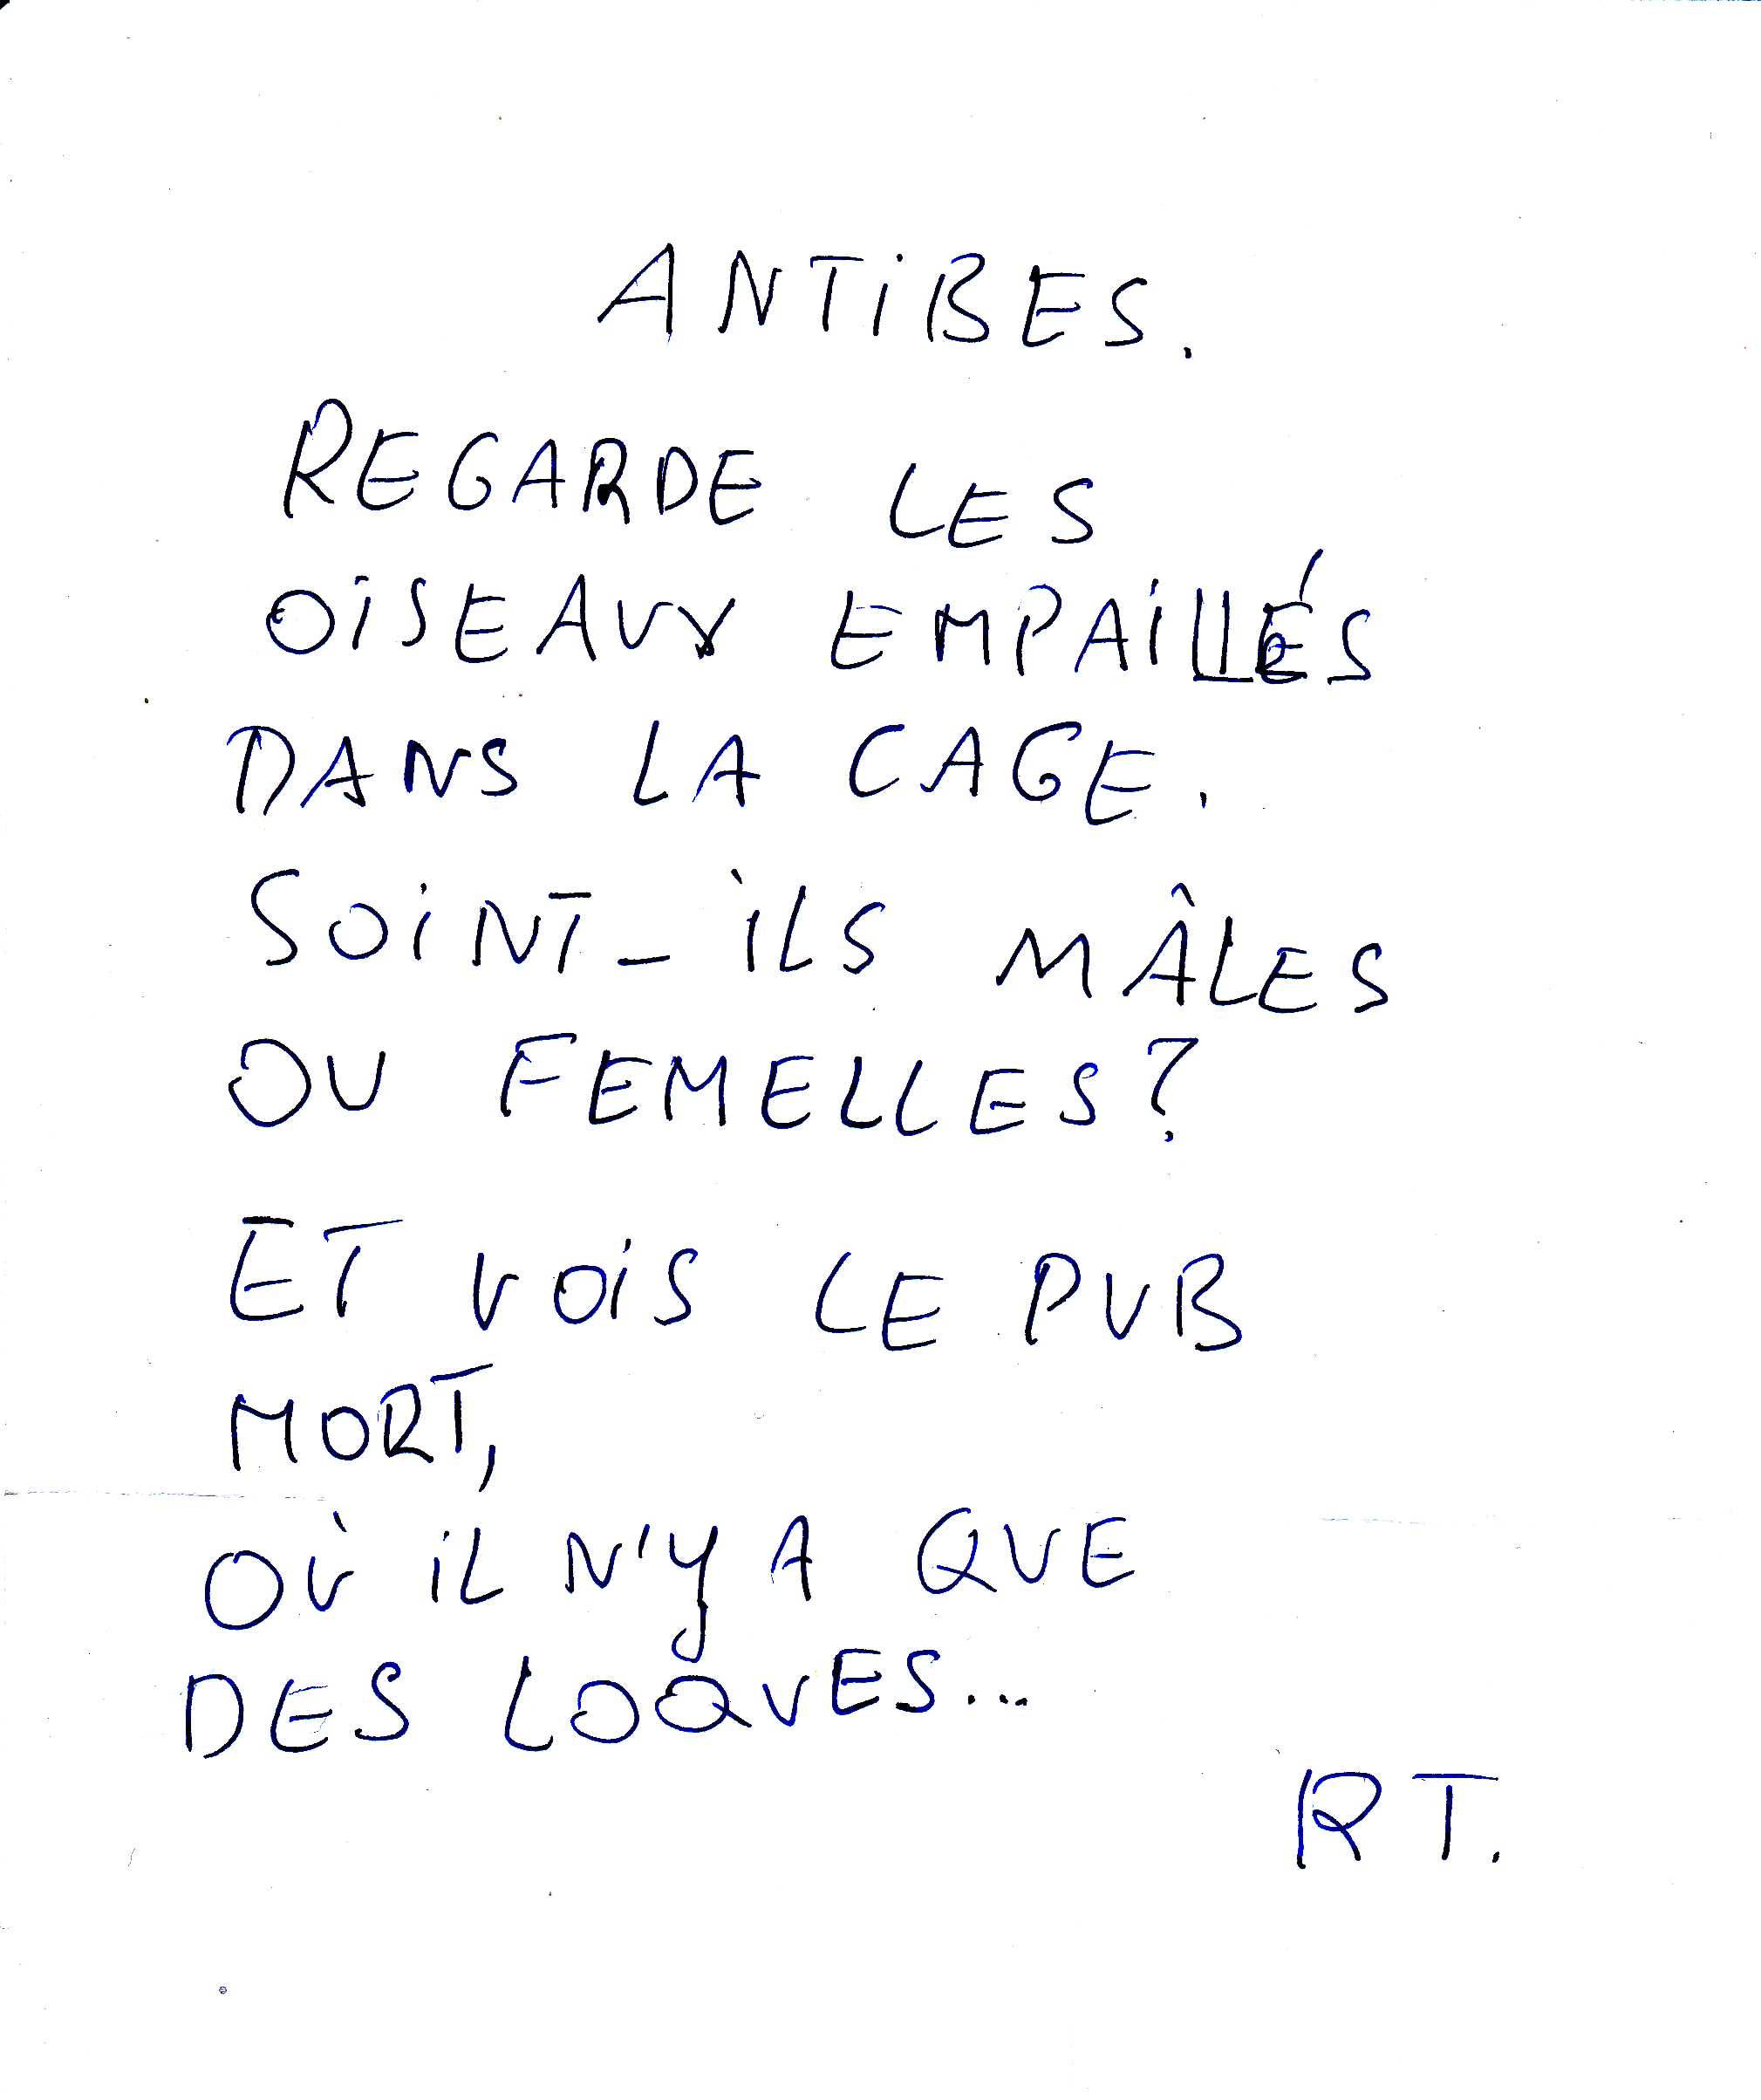 ANTiBES.
REGARDE LES
OiSEAUX EMPAiLLÉS
DANS LA CAGE.
SOiNT-iLS MÂLES
OU FEMELLES?
ET VOiS LE PUB
MORT,
OÙ iL N'Y A QUE
DES LOQUES...
RT.